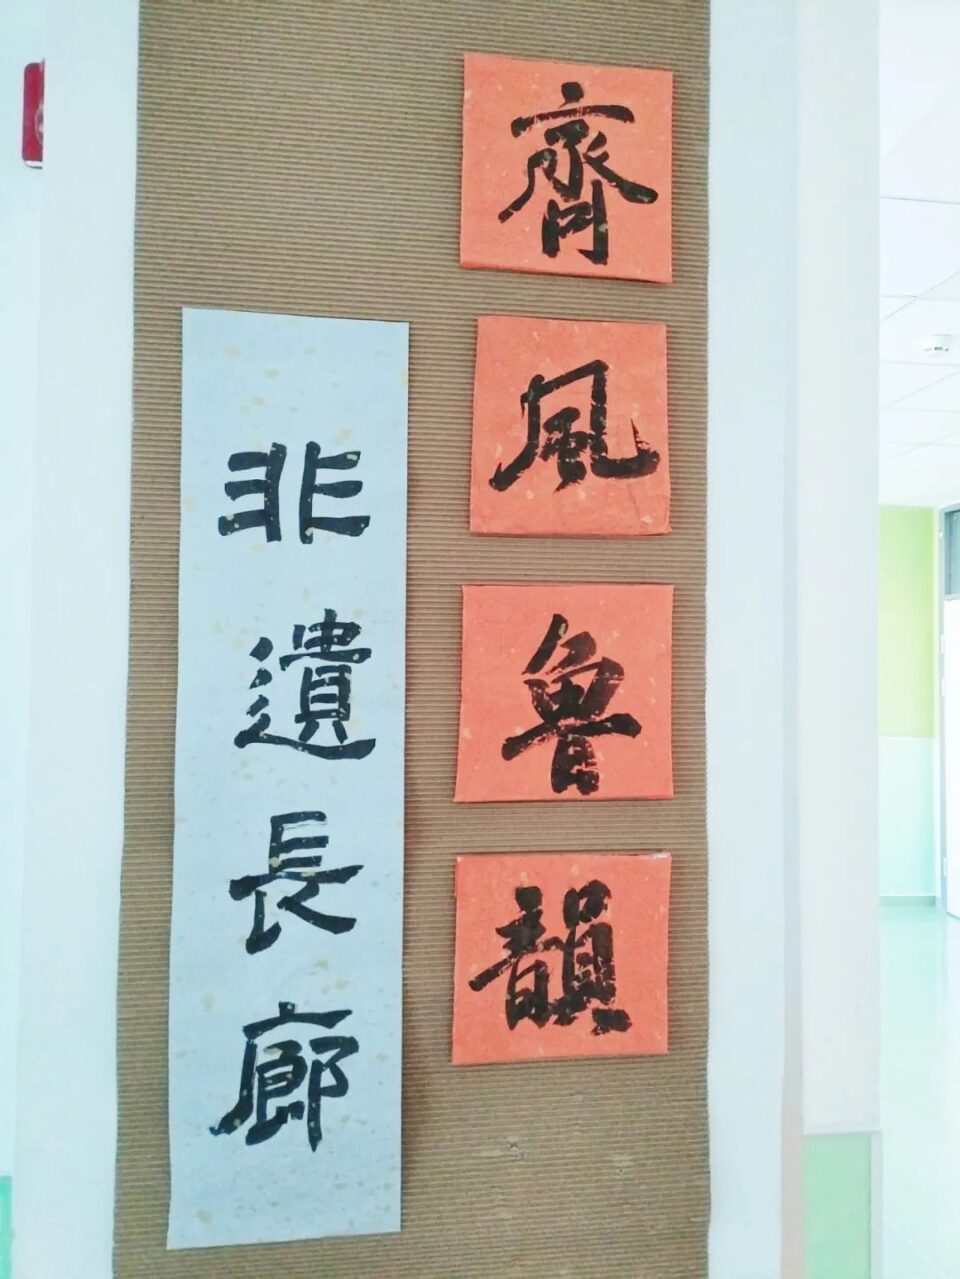 齊風魯韻
非遺長廊